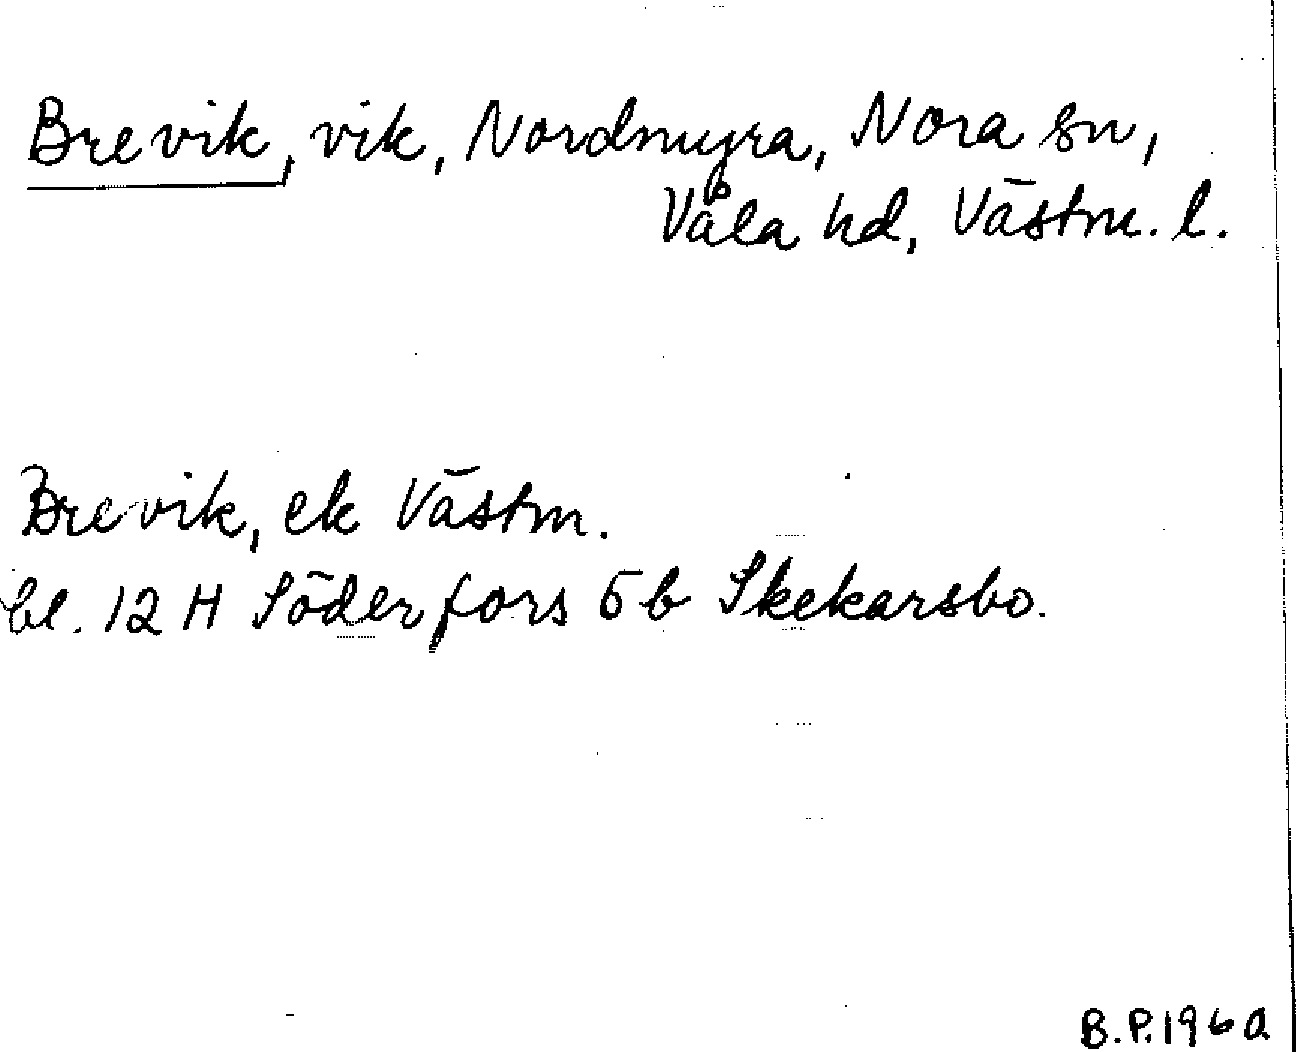 Brevik, vik, Nordmyra, Nora sn,
Våla hd, Västm. l.
Brevik, ek Västm.
bl. 12 H Söderfors 5b Skekarsbo.
B.P. 1960